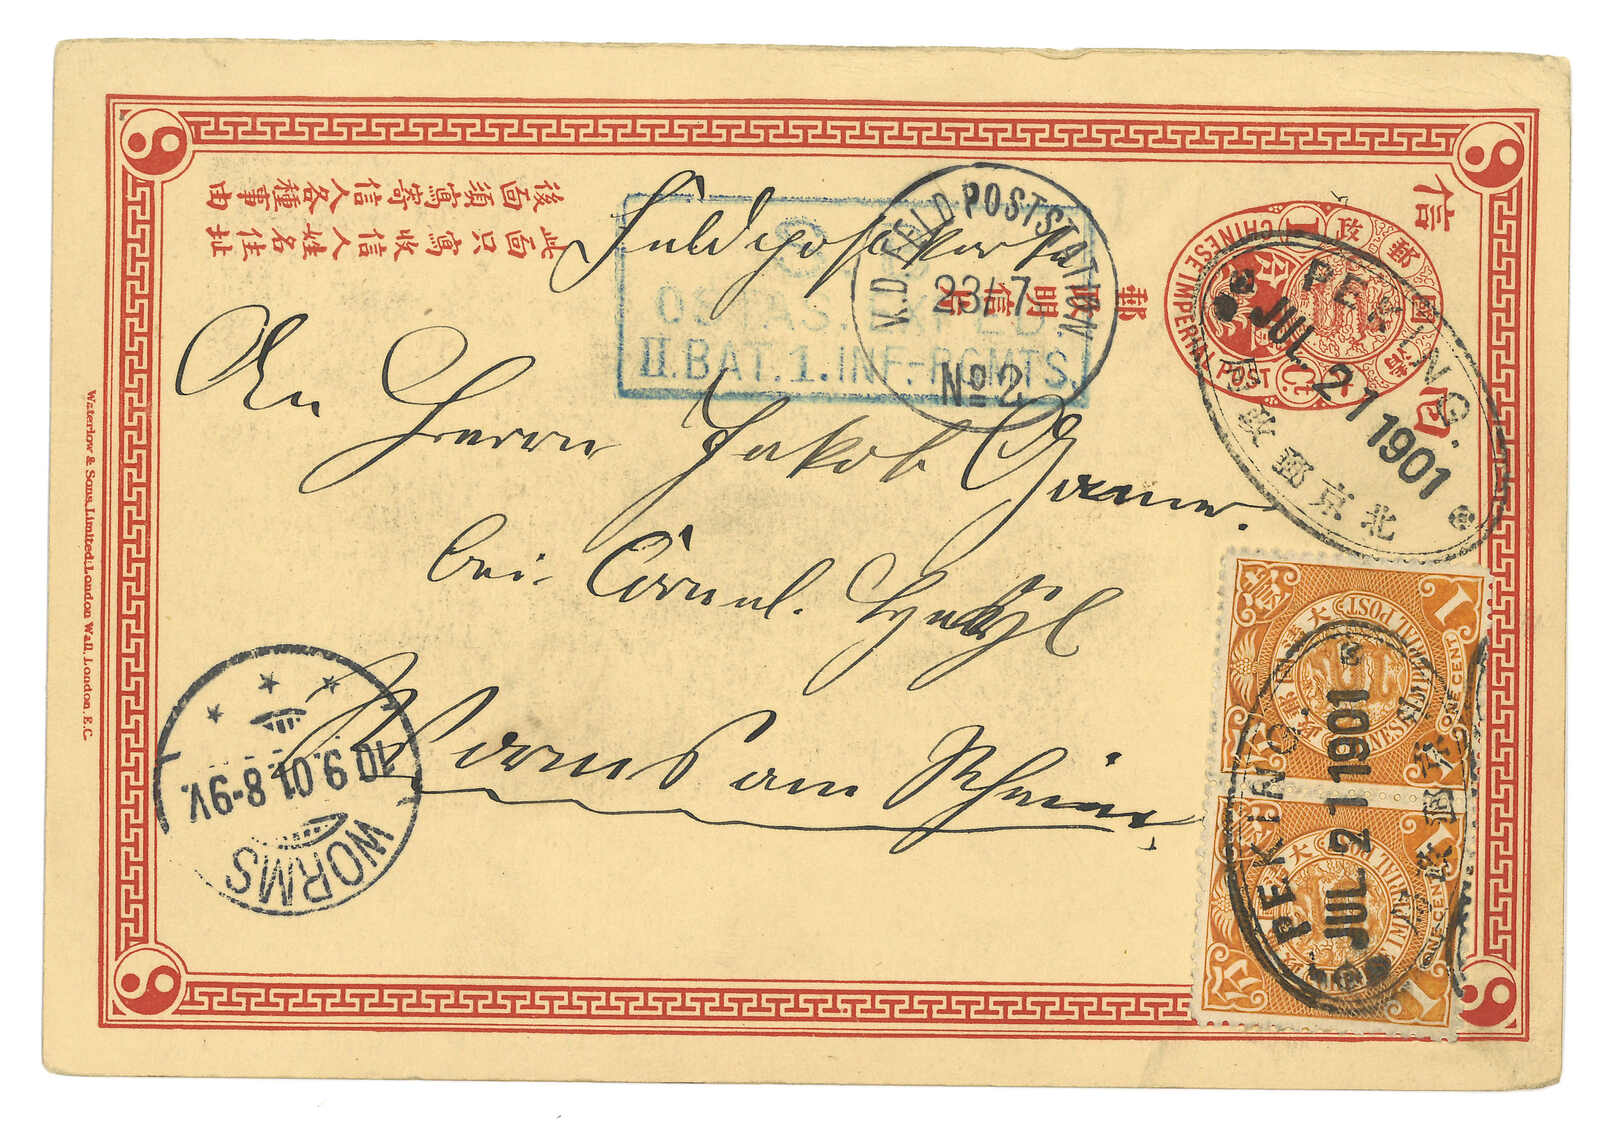 Feldpostkarte
An Herrn Jakob
bei
Worms am Rhein
S. B.
OSTAS. EXPED.
II. BAT. 1. INF.-RGMTS.
K.D. FELD POSTSTATION
23/7
No 2
PEKING.
JUL 21 1901
北京郵政局
PEKING.
JUL 21 1901
WORMS
10.9.01.8-9V.
CHINESE IMPERIAL POST
1
大清國郵政
CHINESE IMPERIAL POST
ONE CENT
1
IMPERIAL POST
ONE CENT
1
郵政明信片
此面只寫收信人姓名住址
後面須寫寄信人各種事由
Waterlow & Sons Limited, London Wall, London, E.C.